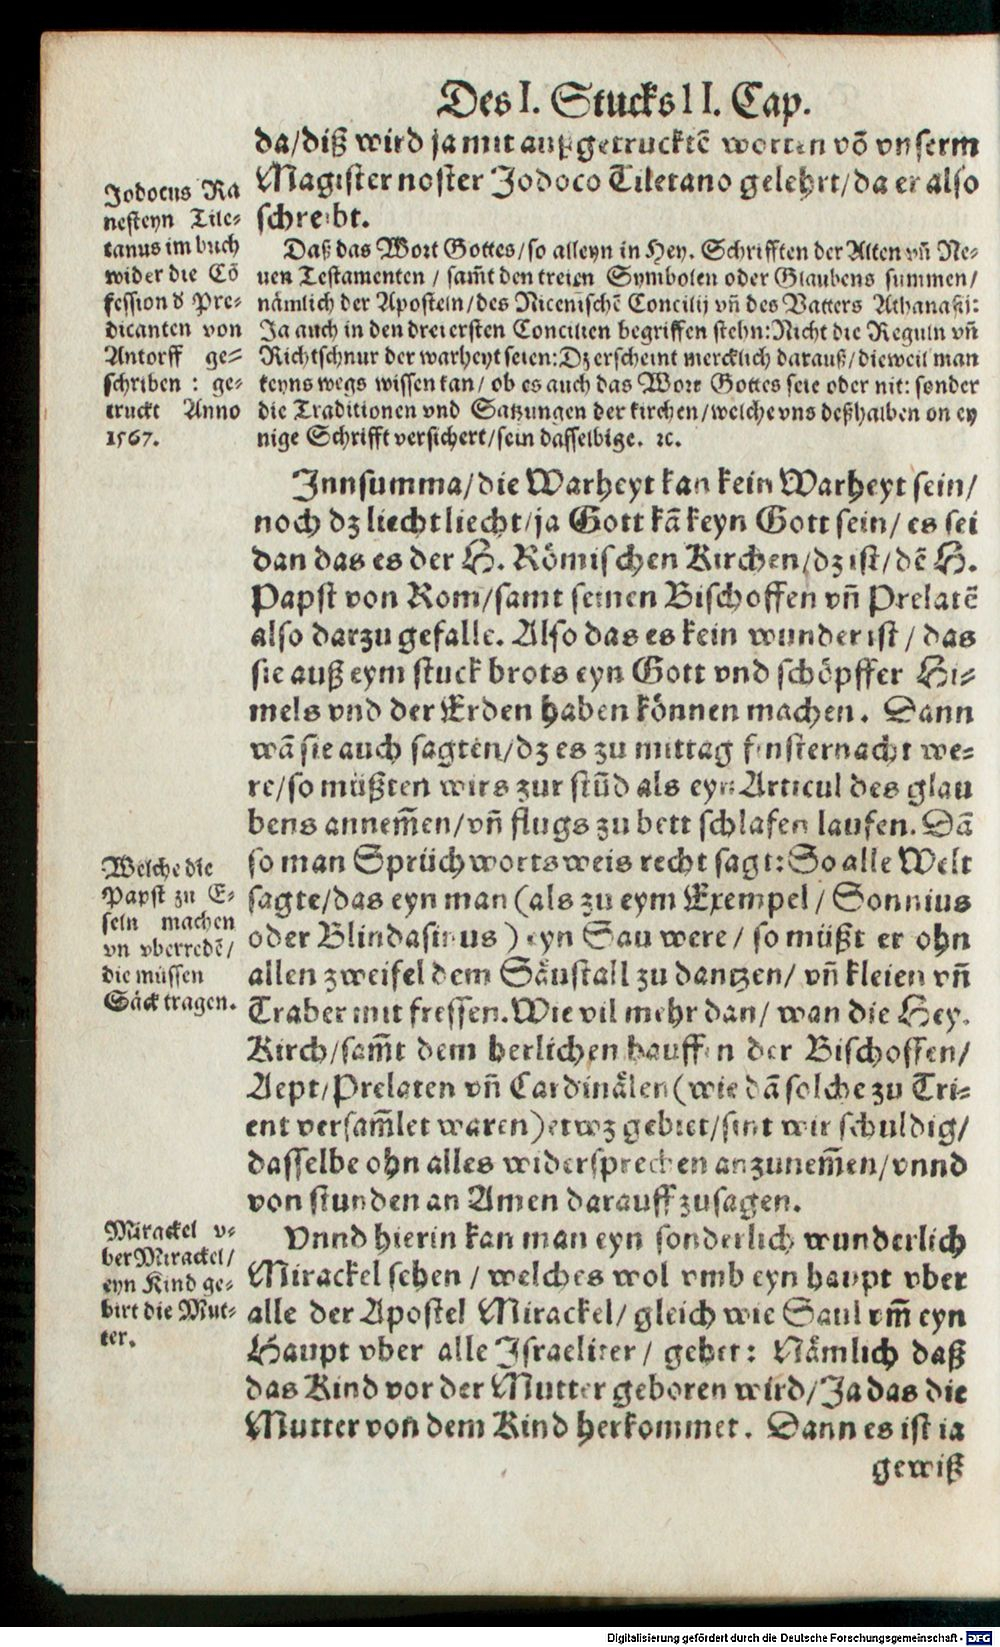 Des I. Stucks II. Cap.
da/diß wird ja mit außgetrucktē worten vō vnserm
Magister noster Jodoco Tiletano gelehrt/da er also
schreibt.
Jodocus Ra
nesteyn Tile-
tanus im buch
wider die Cō
fession d Pre-
dicanten von
Antorff ge-
schriben : ge-
truckt Anno
1567.
Daß das Wort Gottes/so alleyn in Hey. Schrifften der Alten vñ Ne-
uen Testamenten / sam̄t den treien Symbolen oder Glaubens summen/
nämlich der Aposteln/des Nicenischē Concilij vñ des Vatters Athanasij:
Ja auch in den drei ersten Concilien begriffen stehn: Nicht die Reguln vñ
Richtschnur der warheyt seien: Dz erscheint mercklich darauß/dieweil man
keyns wegs wissen kan/ ob es auch das Wort Gottes seie oder nit: sonder
die Traditionen vnd Satzungen der kirchen/welche vns deßhalben on ey
nige Schrifft versichert/sein dasselbige. ꝛc.
Innsumma/die Warheyt kan kein Warheyt sein/
noch dz liecht liecht/ja Gott kā keyn Gott sein/ es sei
dan das es der H. Römischen Kirchen/dz ist/dē H.
Papst von Rom/samt seinen Bischoffen vñ Prelatē
also darzu gefalle. Also das es kein wunder ist / das
sie auß eym stuck brots eyn Gott vnd schöpffer Hi-
mels vnd der Erden haben können machen. Dann
wā sie auch sagten/dz es zu mittag finsternacht we-
re/so müßten wirs zur stūd als eyn Articul des glau
bens annem̄en/vñ flugs zu bett schlafen laufen. Dā
so man Sprüchwortsweis recht sagt: So alle Welt
sagte/das eyn man (als zu eym Exempel / Sonnius
oder Blindasinus ) eyn Sau were / so müßt er ohn
allen zweifel dem Säustall zu dantzen/ vñ kleien vñ
Traber mit fressen. Wie vil mehr dan/ wan die Hey.
Kirch/sam̄t dem herlichen hauffen der Bischoffen/
Aept/Prelaten vñ Cardinälen (wie dā solche zu Tri-
ent versam̄let waren) etwz gebiet/sint wir schuldig/
dasselbe ohn alles widersprechen anzunem̄en/vnnd
von stunden an Amen darauff zusagen.
Welche die
Papst zu E-
seln machen
vn vberredē/
die müssen
Säck tragen.
Vnnd hierin kan man eyn sonderlich wunderlich
Mirackel sehen / welches wol vmb eyn haupt vber
alle der Apostel Mirackel/ gleich wie Saul vm̄ eyn
Haupt vber alle Israeliter / gehet: Nämlich daß
das Kind vor der Mutter geboren wird/Ja das die
Mutter von dem Kind herkommet. Dann es ist ia
Mirackel v-
ber Mirackel/
eyn Kind ge-
birt die Mut-
ter.
gewiß
Digitalisierung gefördert durch die Deutsche Forschungsgemeinschaft - DFG